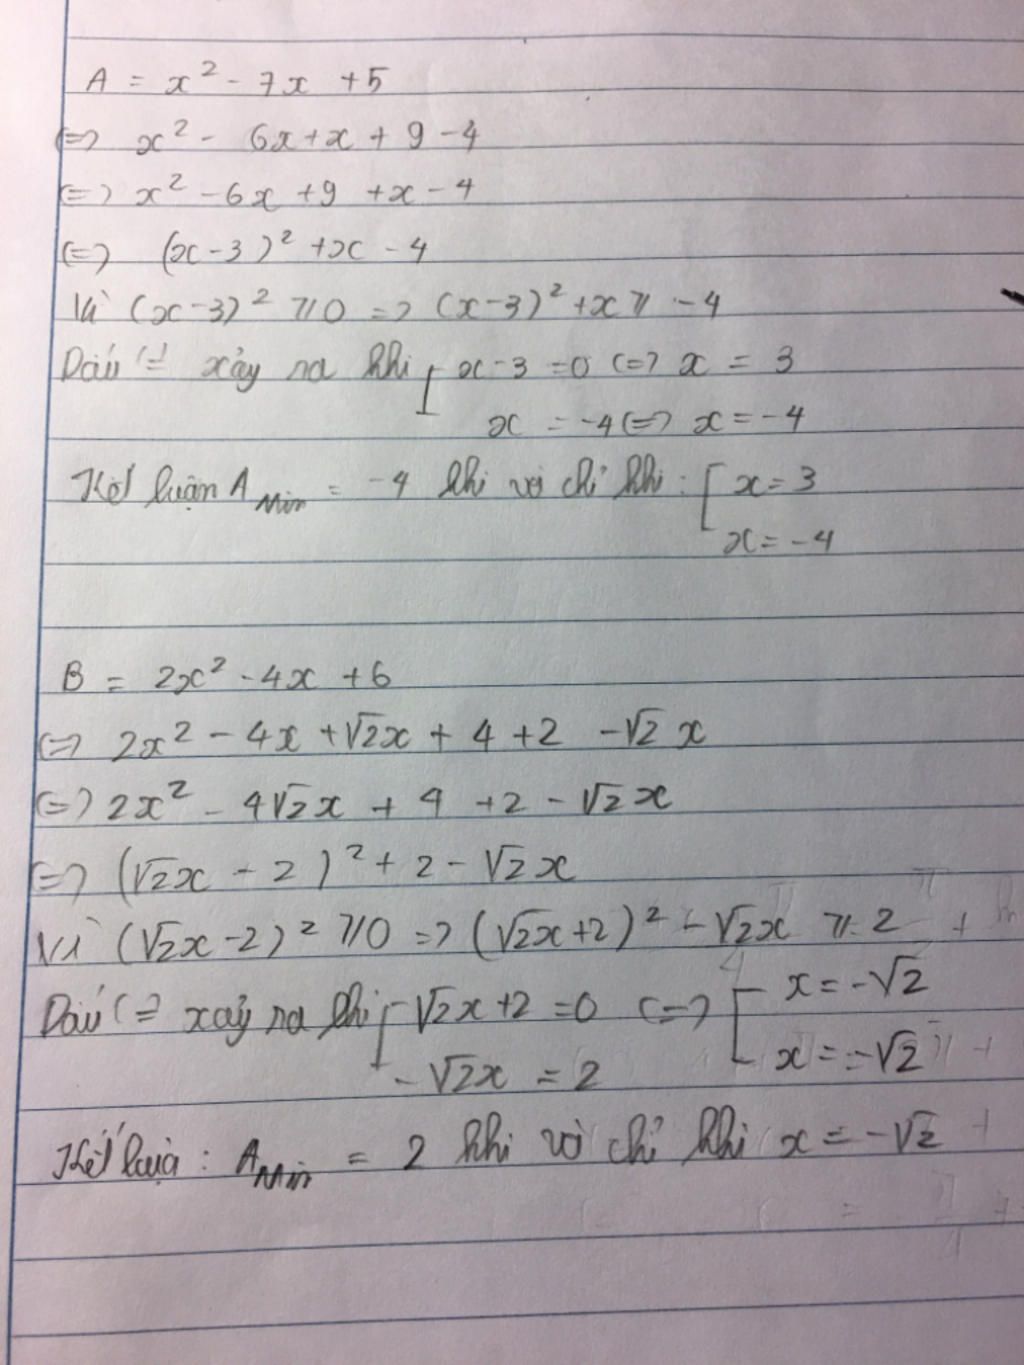 A = x² - 7x + 5
(=) x² - 6x + x + 9 - 4
(=) x² - 6x + 9 + x - 4
(=) (x - 3)² + x - 4
Vì (x - 3)² ⩾ 0 => (x - 3)² + x ⩾ -4
Dấu "=" xảy ra khi [ x - 3 = 0 (=) x = 3
x = -4 (=) x = -4
Kết luận A Min = -4 khi và chỉ khi : [ x = 3
x = -4
B = 2x² - 4x + 6
(=) 2x² - 4x + √2x + 4 + 2 - √2 x
(=) 2x² - 4√2x + 4 + 2 - √2x
(=) (√2x - 2)² + 2 - √2x
Vì (√2x - 2)² ⩾ 0 => (√2x + 2)² - √2x ⩾ 2
Dấu "=" xảy ra khi [ -√2x + 2 = 0 (=) [ x = -√2
-√2x = 2 x = -√2
Kết luận : A Min = 2 khi và chỉ khi x = -√2